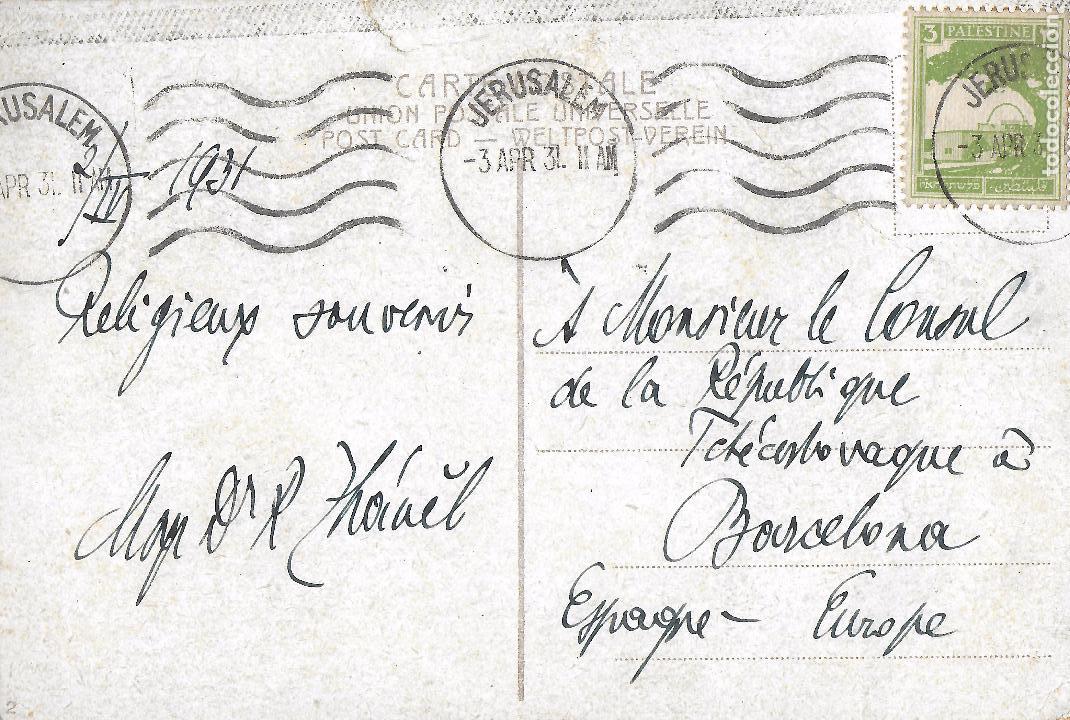 CARTE POSTALE
UNION POSTALE UNIVERSELLE
POST CARD — WELTPOST-VEREIN
JERUSALEM
-3 APR 31. 11 AM
RUSALEM
APR 31. 11 AM
JERUS
-3 APR 3
3 PALESTINE
פלשתינה
فلسطين
todocoleccion
1931
Religieux souvenir
Mgr Dr R Zháněl
À Monsieur le Consul
de la République
Tchécoslovaque à
Barcelona
Espagne - Europe
2